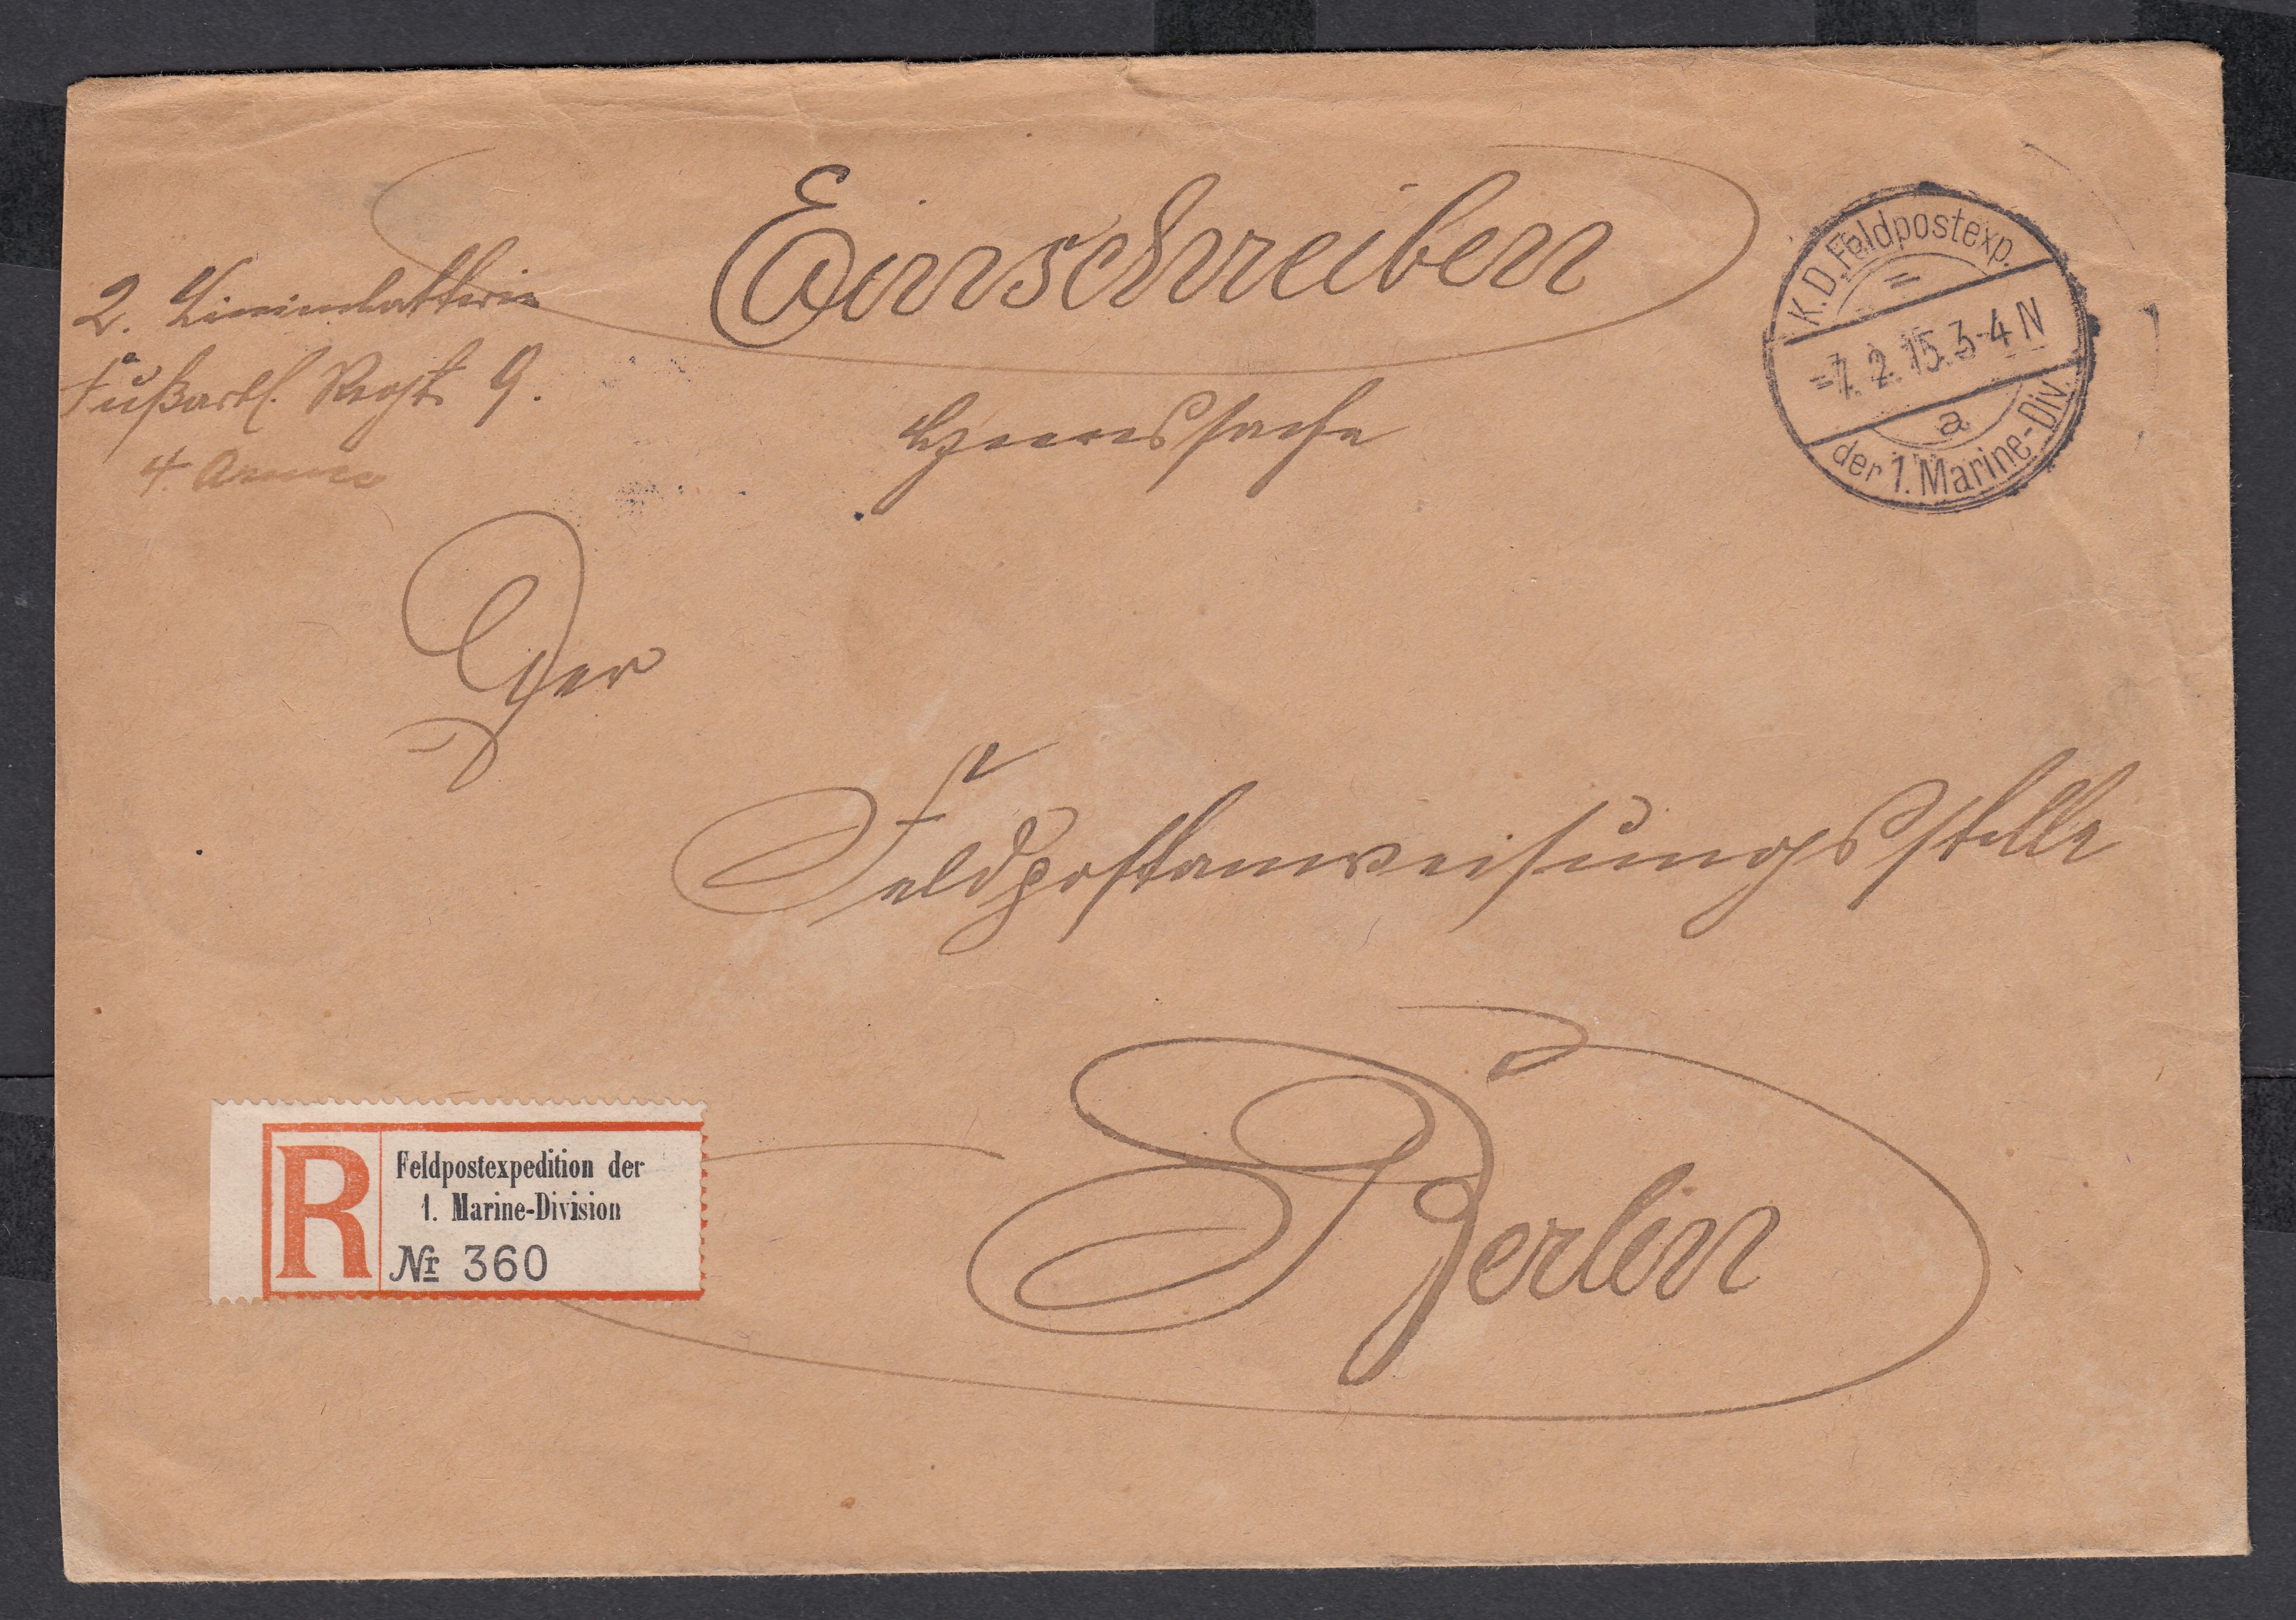 Einschreiben
2. Linienbatterie
Fußartl. Regt. 9.
4. Armee
Heeressache
K.D. Feldpostexp.
7. 2. 15. 3-4 N
a
der 1. Marine-Div.
Der
Feldpostanweisungsstelle
Berlin
R
Feldpostexpedition der
1. Marine-Division
Nr 360